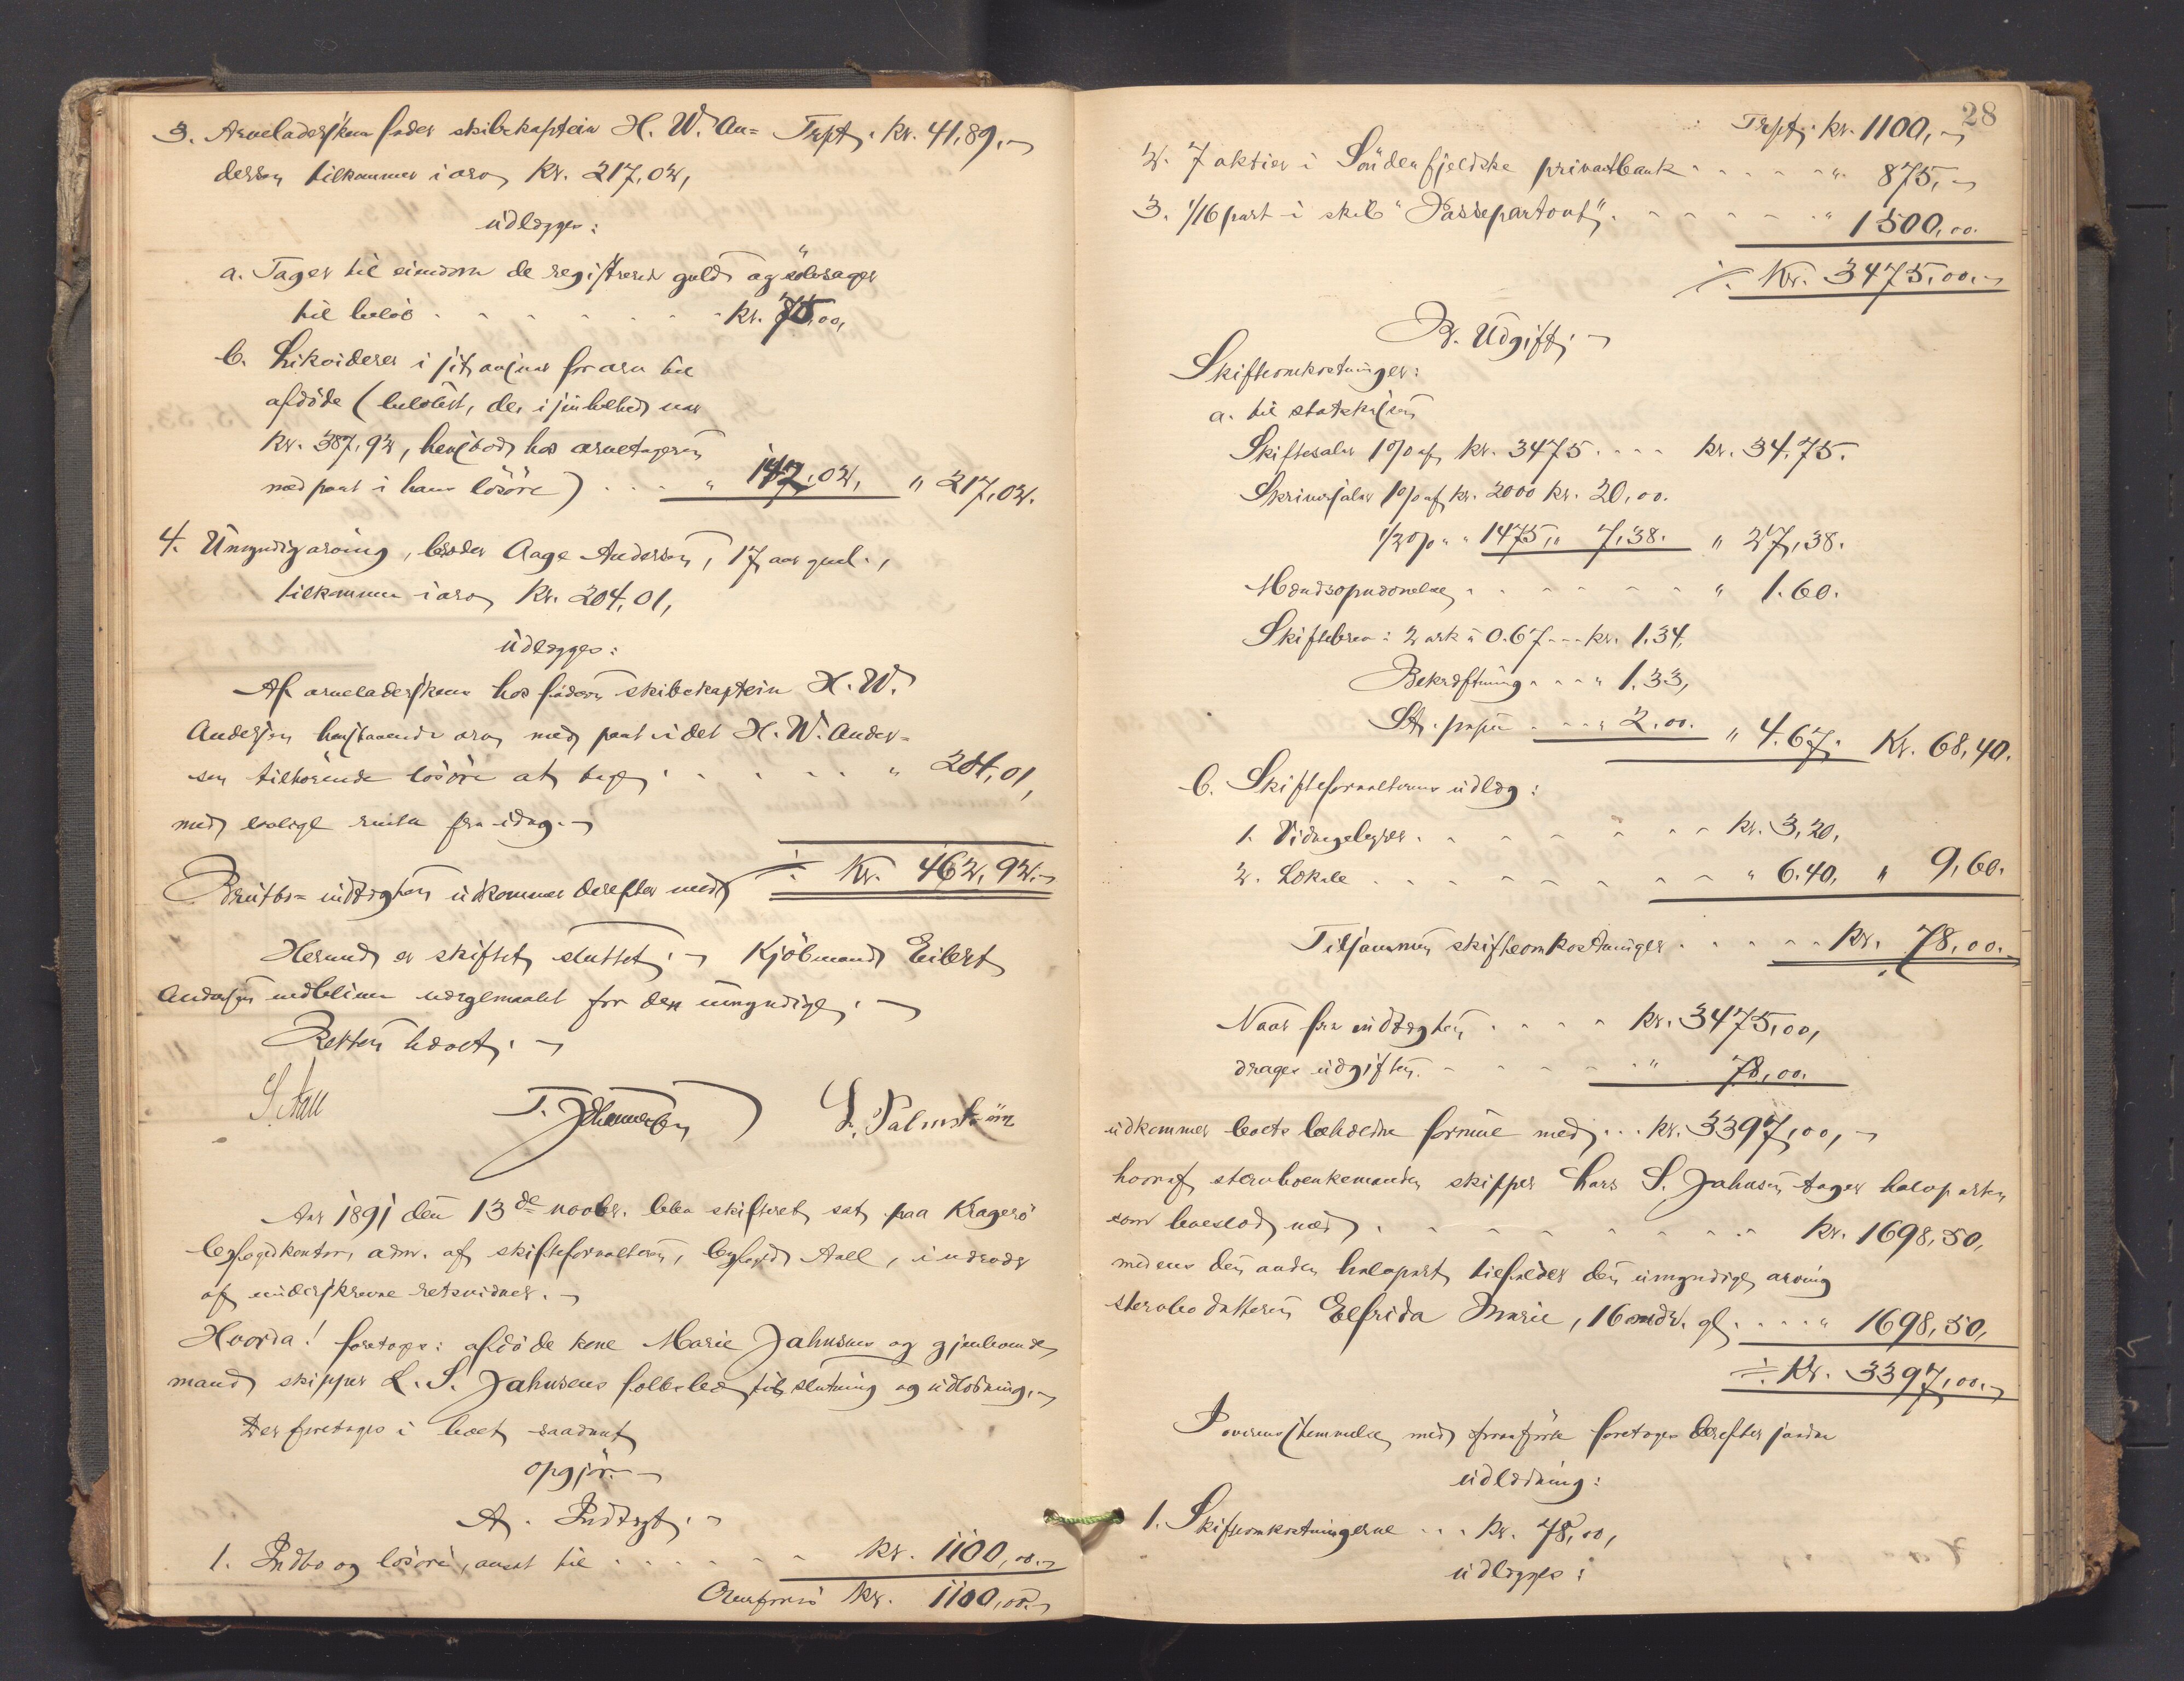 3. Arveladerskens fader skibskaptein H. W. An= Trpt. kr. 41,89.
dersen tilkommer i arv kr. 217,02,
udlægges:
a. Tager til eiendom de registrerede guld og sölvsager
til beløb . . . . . . . kr. 75,00,
b. Likviderer i sit ansvar for arv til
afdöde (beløbet, der i sin helhed var
kr. 387,92, henstod hos arvetageren
med pant i hans lösöre) . . . " 142,02, " 217,02.
4. Umyndig arving, broder Aage Andersen, 17 aar gml.,
tilkommer i arv kr. 204,01,
udlægges:
Af arveladerskens hos faderen skibskaptein H. W.
Andersen henstaaende arv med pant i det H. W. Ander=
sen tilhörende lösöre . . . . . " 204,01,
med lovlige renter fra idag.
Brutto-indtægten udkommer derefter med ÷ Kr. 462,92.
Hermed er skiftet sluttet. Kjöbmand Eilert
Andersen vedbliver værgemaalet for den umyndige.
Retten hævet.
S. Aall T. Johannesen L. Palmström
Aar 1891 den 13de novbr. blev skifteret sat paa Kragerö
byfogedkontor, adm. af skifteforvalteren, byfoged Aall, i nærvær
af underskrevne retsvidner.
Hvorda! foretoges: afdöde kone Marie Jahnsens og gjenlevende
mand skipper L. S. Jahnsens fællesbo til slutning og udlodning.
Der foretages i boet saadant
opgjör.
A. Indtægt.
1. Indbo og lösöre, ansat til . . . . . . kr. 1100,00.
Overföres kr. 1100,00.
28
Trpt. kr. 1100,
2. 7 aktier i Söndenfjeldske privatbank . . . . " 875,
3. 1/16 part i skib "Passepartout" . . . . " 1500,00.
÷ Kr. 3475,00.
B. Udgift.
Skifteomkostninger:
a. til statskassen
Skiftesalær 1% af kr. 3475 . . . . kr. 34.75.
Skriversalær 1% af kr. 2000 kr. 20,00.
1/2% " " 1475 " 7,38. " 27,38.
Mændsopnævnelse . . . . . . " 1.60.
Skiftebrev: 2 ark à 0.67 . . . kr. 1.34,
Bekræftning . . . " 1.33,
St. papir . . . " 2.00. " 4.67. Kr. 68,40.
b. Skifteforvalterens udlæg:
1. Vidnegebyrer . . . . . . . kr. 3,20,
2. Lokale . . . . . . . . . " 6.40, " 9,60.
Tilsammen skifteomkostninger . . . . . kr. 78,00.
Naar fra indtægten . . . . kr. 3475,00,
drages udgiften . . . . . " 78,00.
udkommer boets beholdne formue med . . . kr. 3397,00,
hvoraf stervboenkemanden skipper Lars S. Jahnsen tager halvparten
som boeslod med . . . . . . . . . kr. 1698,50,
medens den anden halvpart tilfalder den umyndige arving
stervbodatteren Elfrida Marie, 16 mdr. gl. . . . . " 1698,50,
÷ Kr. 3397,00.
I overensstemmelse med foranförte foretages derefter saadan
udlodning:
1. Skifteomkostningerne . . . kr. 78,00,
udlægges: